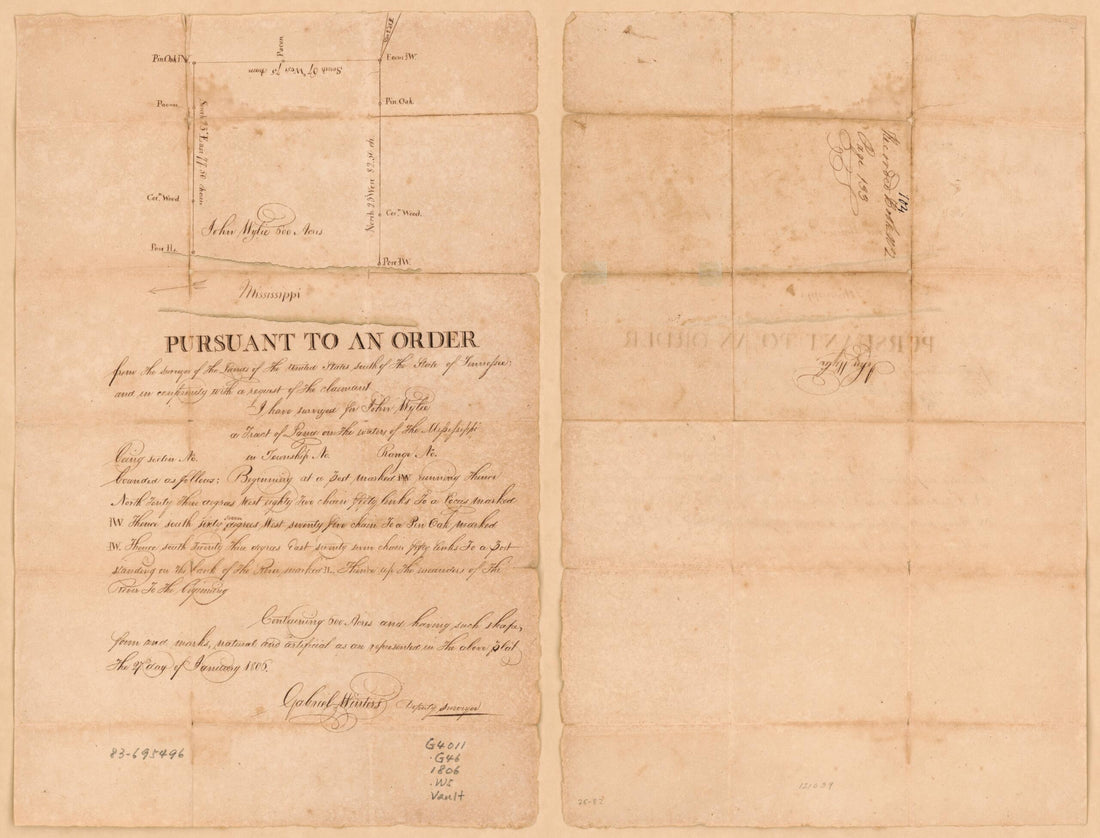 Pin Oak JW.
Pacan
South 67 West 75 chains
Ecan JW.
Pacan
Pin Oak
South 23 East 77.50 chains
North 23 West 82.50 ch.
Cotn. Wood
Cotn. Wood.
John Wylie 500 Acres
Post H.
Post JW.
Mississippi
PURSUANT TO AN ORDER
from the surveyor of the Lands of the United States south of the State of Tennessee
and in conformity with a request of the claimant
I have surveyed for John Wylie
a Tract of Land on the waters of the Mississippi
being section No. in Township No. Range No.
bounded as follows; Beginning at a Post marked JW running thence
North Twenty Three degrees West eighty Two chains fifty links To a marked
JW. Thence south sixty seven degrees West seventy five chains To a Pin Oak marked
JW. Thence south Twenty three degrees East seventy seven chains fifty links To a Post
standing on the bank of the River marked H. Thence up the meanders of the
River To the Beginning
Containing 500 Acres and having such shape,
form and marks, natural and artificial as are represented in the above plat
The 27th day of January 1806.
Gabriel Winters Deputy Surveyor
83-695496
G4011
.G46
1806
.W5
Vault
104
Recorded Book No 2
Page 133
John Wylie
PURSUANT TO AN ORDER
25-82
121039